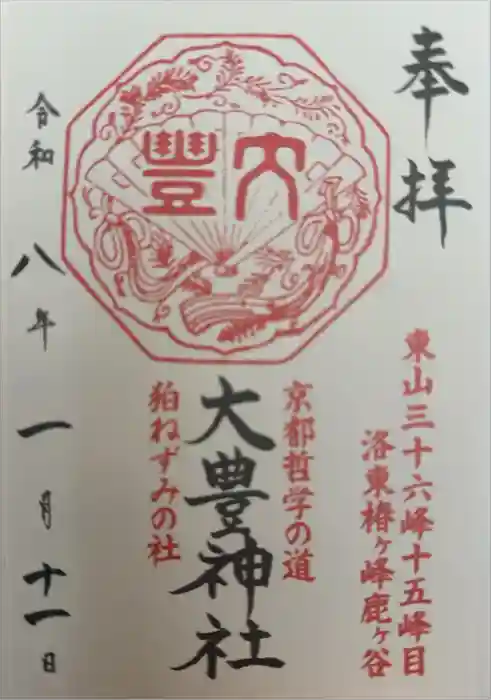 奉拝
東山三十六峰十五峰目
洛東椿ヶ峰鹿ヶ谷
京都哲学の道
大豊
大豊神社
狛ねずみの社
令和八年一月十一日